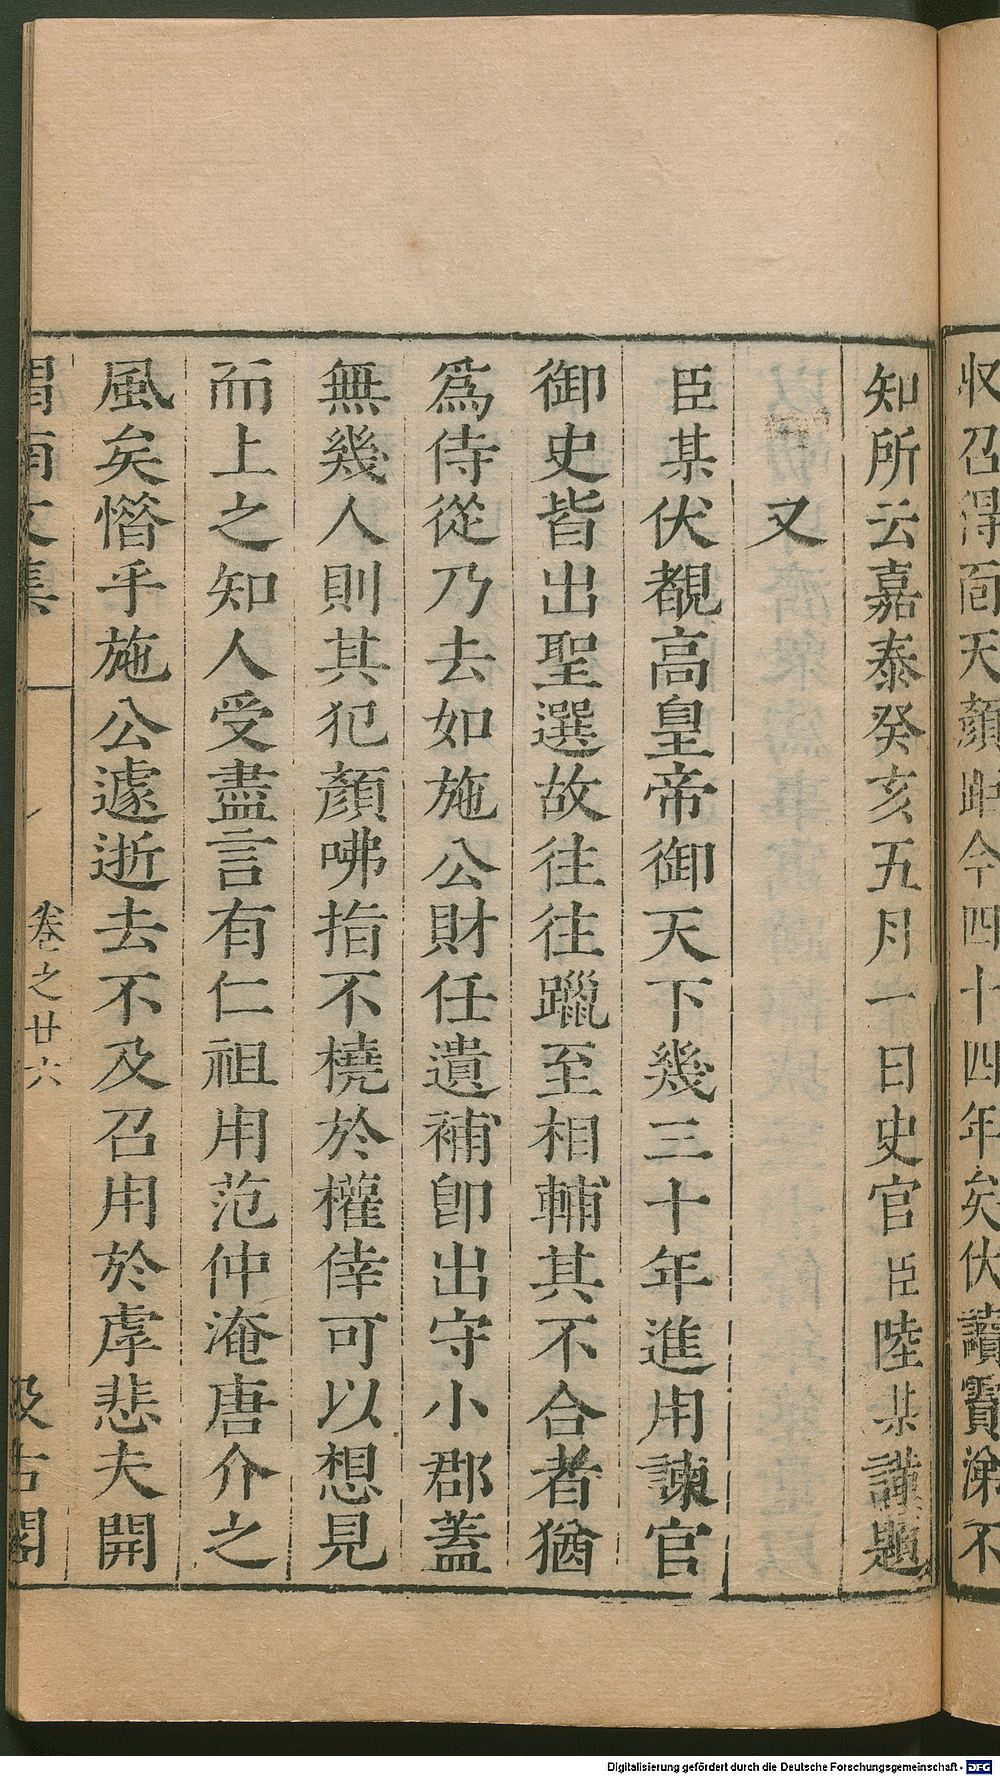 収召得面天顔距今四十四年矣伏讀寶 涕不
知所云嘉泰癸亥五月一日史官臣陸某謹題
又
臣某伏覩高皇帝御天下幾三十年進用諫官
御史皆出聖選故往往躐至相輔其不合者猶
爲侍從乃去如施公財任遺補卽出守小郡蓋
無幾人則其犯顏咈指不橈於權倖可以想見
而上之知人受盡言有仁祖用范仲淹唐介之
風矣惜乎施公遽逝去不及召用於虖悲夫開
渭南文集 卷之廿六 汲古閣
Digitalisierung gefördert durch die Deutsche Forschungsgemeinschaft - DFG